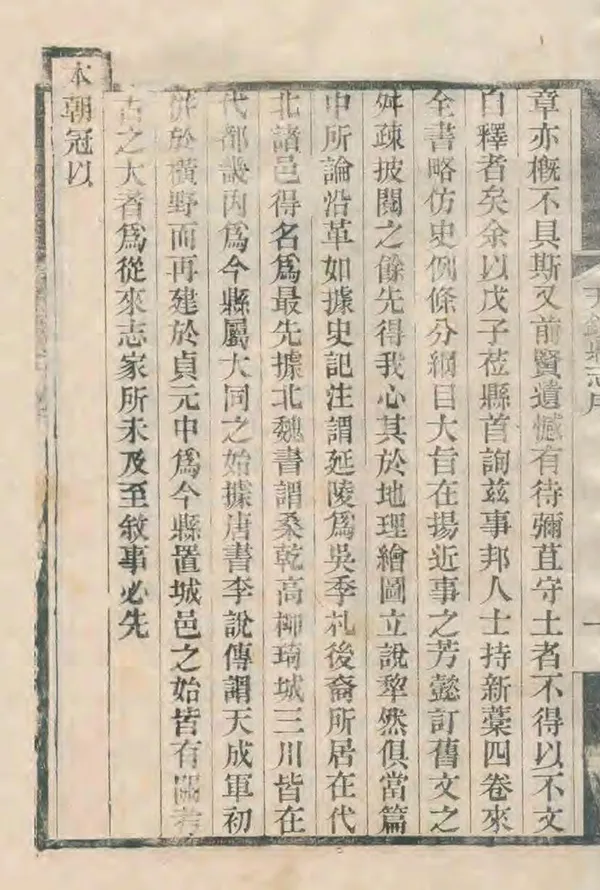 章亦槪不具斯又前賢遺憾有待彌苴守土者不得以不文
自釋者矣余以戊子莅縣首詢茲事邦人士持新藁四卷來
全書略仿史例條分綱目大旨在揚近事之芳懿訂舊文之
舛疎披閱之餘先得我心其於地理繪圖立說犂然俱當篇
中所論沿革如據史記注謂延陵爲吳季札後裔所居在代
北諸邑得名爲最先據北魏書謂桑乾高柳琦城三川皆在
代都畿內爲今縣屬大同之始據唐書李說傳謂天成軍初
併於橫野而再建於貞元中爲今縣置城邑之始皆有關考
古之大者爲從來志家所未及至敘事必先
本朝冠以
天鎭縣志序
一